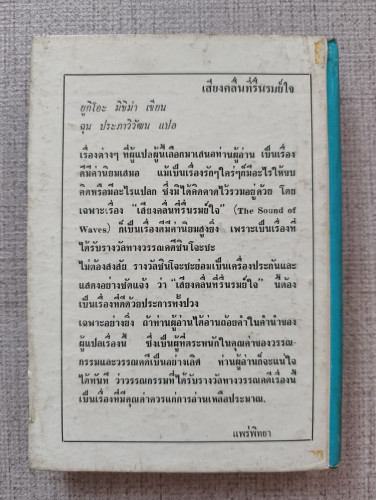 เสียงคลื่นที่รื่นรมย์ใจ
ยูกิโอะ มิชิม่า เขียน
ฉุน ประภาวิวัฒน แปล
เรื่องต่างๆ ที่ผู้แปลผู้นี้เลือกมาเสนอท่านผู้อ่าน เป็นเรื่อง
ดีมีค่านิยมเสมอ แม้เป็นเรื่องรักๆใคร่ๆก็มีอะไรให้ขบ
คิดหรือมีอะไรแปลก ซึ่งมิได้คิดคาดไว้รวมอยู่ด้วย โดย
เฉพาะเรื่อง "เสียงคลื่นที่รื่นรมย์ใจ" (The Sound of
Waves) ก็เป็นเรื่องดีมีค่านิยมสูงยิ่ง เพราะเป็นเรื่องที่
ได้รับรางวัลทางวรรณคดีชินโจะชะ
ไม่ต้องสงสัย รางวัลชินโจะชะย่อมเป็นเครื่องประกันและ
แสดงอย่างชัดแจ้ง ว่า "เสียงคลื่นที่รื่นรมย์ใจ" นี้ต้อง
เป็นเรื่องที่ดีด้วยประการทั้งปวง
เฉพาะอย่างยิ่ง ถ้าท่านผู้อ่านได้อ่านถ้อยคำในคำนำของ
ผู้แปลเรื่องนี้ ซึ่งเป็นผู้ที่ตระหนักในคุณค่าของวรรณ-
กรรมและวรรณคดีเป็นอย่างเลิศ ท่านผู้อ่านก็จะแน่ใจ
ได้ทันที ว่าวรรณกรรมที่ได้รับรางวัลทางวรรณคดีเรื่องนี้
เป็นเรื่องที่มีคุณค่าควรแก่การอ่านเหลือประมาณ.
แพร่พิทยา